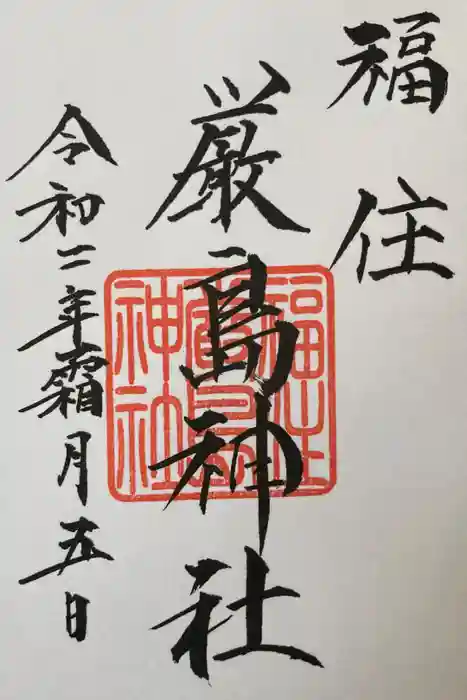 福住
厳島神社
令和二年霜月五日
福住
厳島
神社